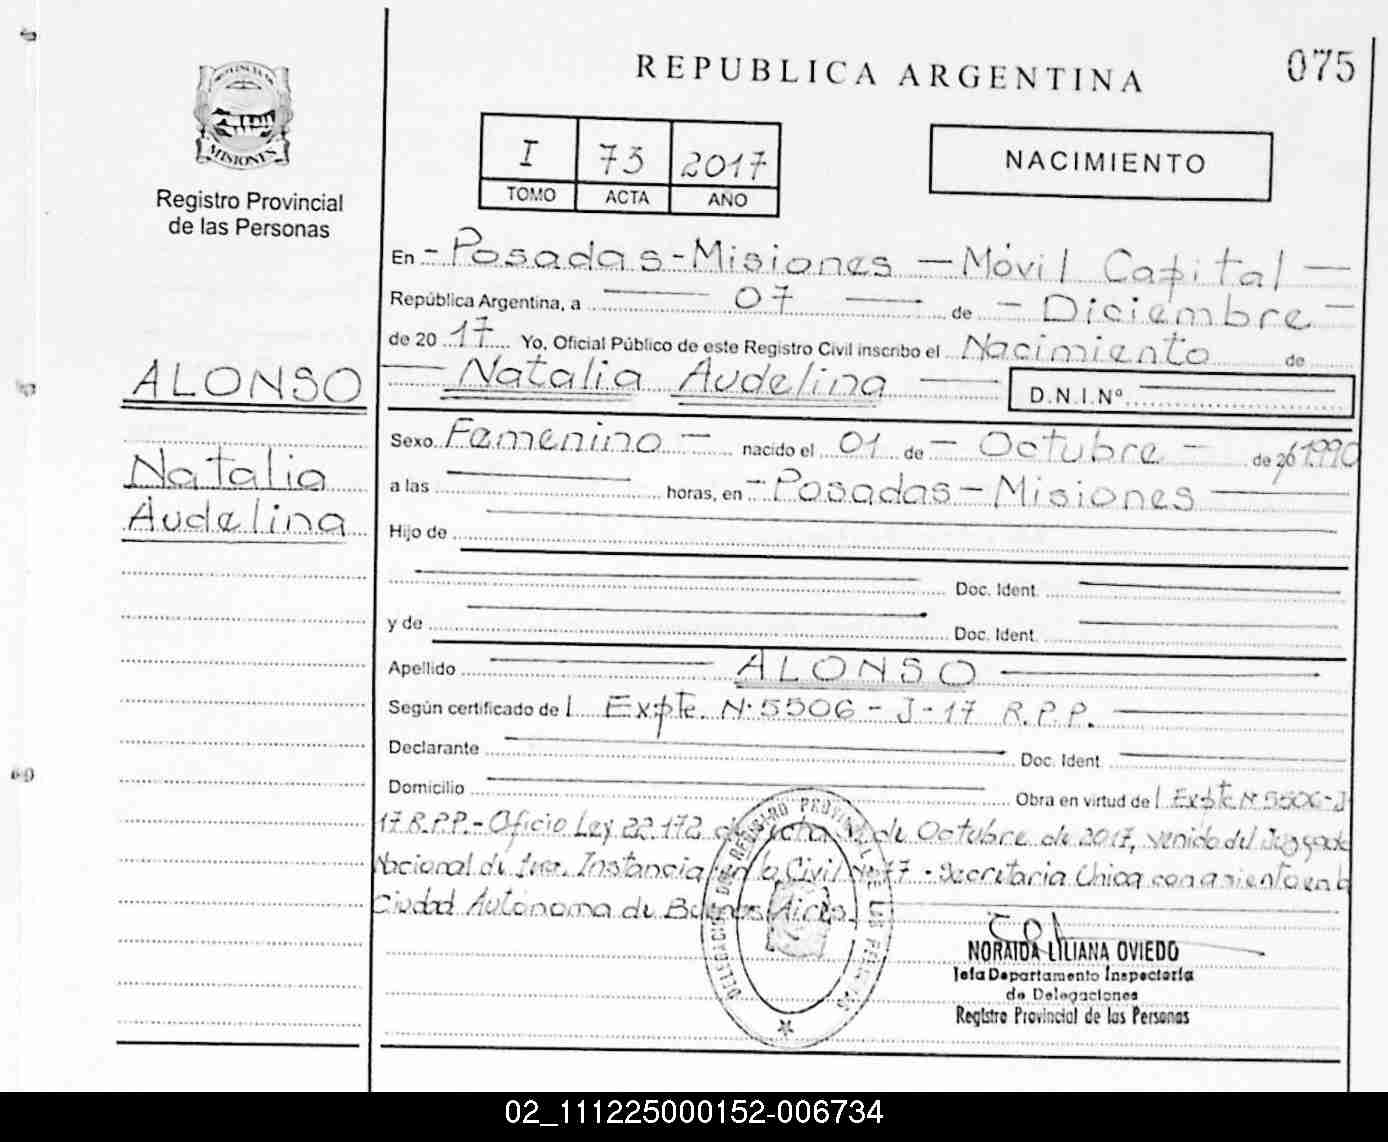 REPUBLICA ARGENTINA
075
PROVINCIA DE
MISIONES
Registro Provincial
de las Personas
I 73 2017
TOMO ACTA AÑO
NACIMIENTO
En - Posadas - Misiones - Móvil Capital -
República Argentina, a 07 de - Diciembre -
de 20 17 Yo, Oficial Público de este Registro Civil inscribo el Nacimiento de
Natalia Audelina D.N.I.Nº
ALONSO
Natalia
Audelina
Sexo Femenino - nacido el 01 de - Octubre - de 20 1990
a las horas, en - Posadas - Misiones
Hijo de
Doc. Ident.
y de Doc. Ident.
Apellido ALONSO
Según certificado de l Expte. N° 5506 - J - 17 R.P.P.
Declarante Doc. Ident.
Domicilio Obra en virtud de l Expte N° 5506-J
17 R.P.P. - Oficio Ley 22.172 de fecha de Octubre de 2017, venido del Juzgado
Nacional de 1era. Instancia en lo Civil N° 77 - Secretaria Unica con asiento en la
Ciudad Autónoma de Buenos Aires.
DELEGACION DEL REGISTRO PROVINCIAL DE LAS PERSONAS
NORAIDA LILIANA OVIEDO
Jefa Departamento Inspectoría
de Delegaciones
Registro Provincial de las Personas
02_111225000152-006734